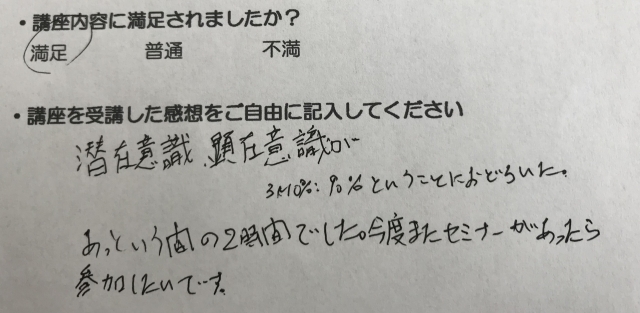 ・講座内容に満足されましたか?
満足 普通 不満
・講座を受講した感想をご自由に記入してください
潜在意識、顕在意識が
10%:90%ということにおどろいた。
あっという間の2時間でした。今度またセミナーがあったら
参加したいです。